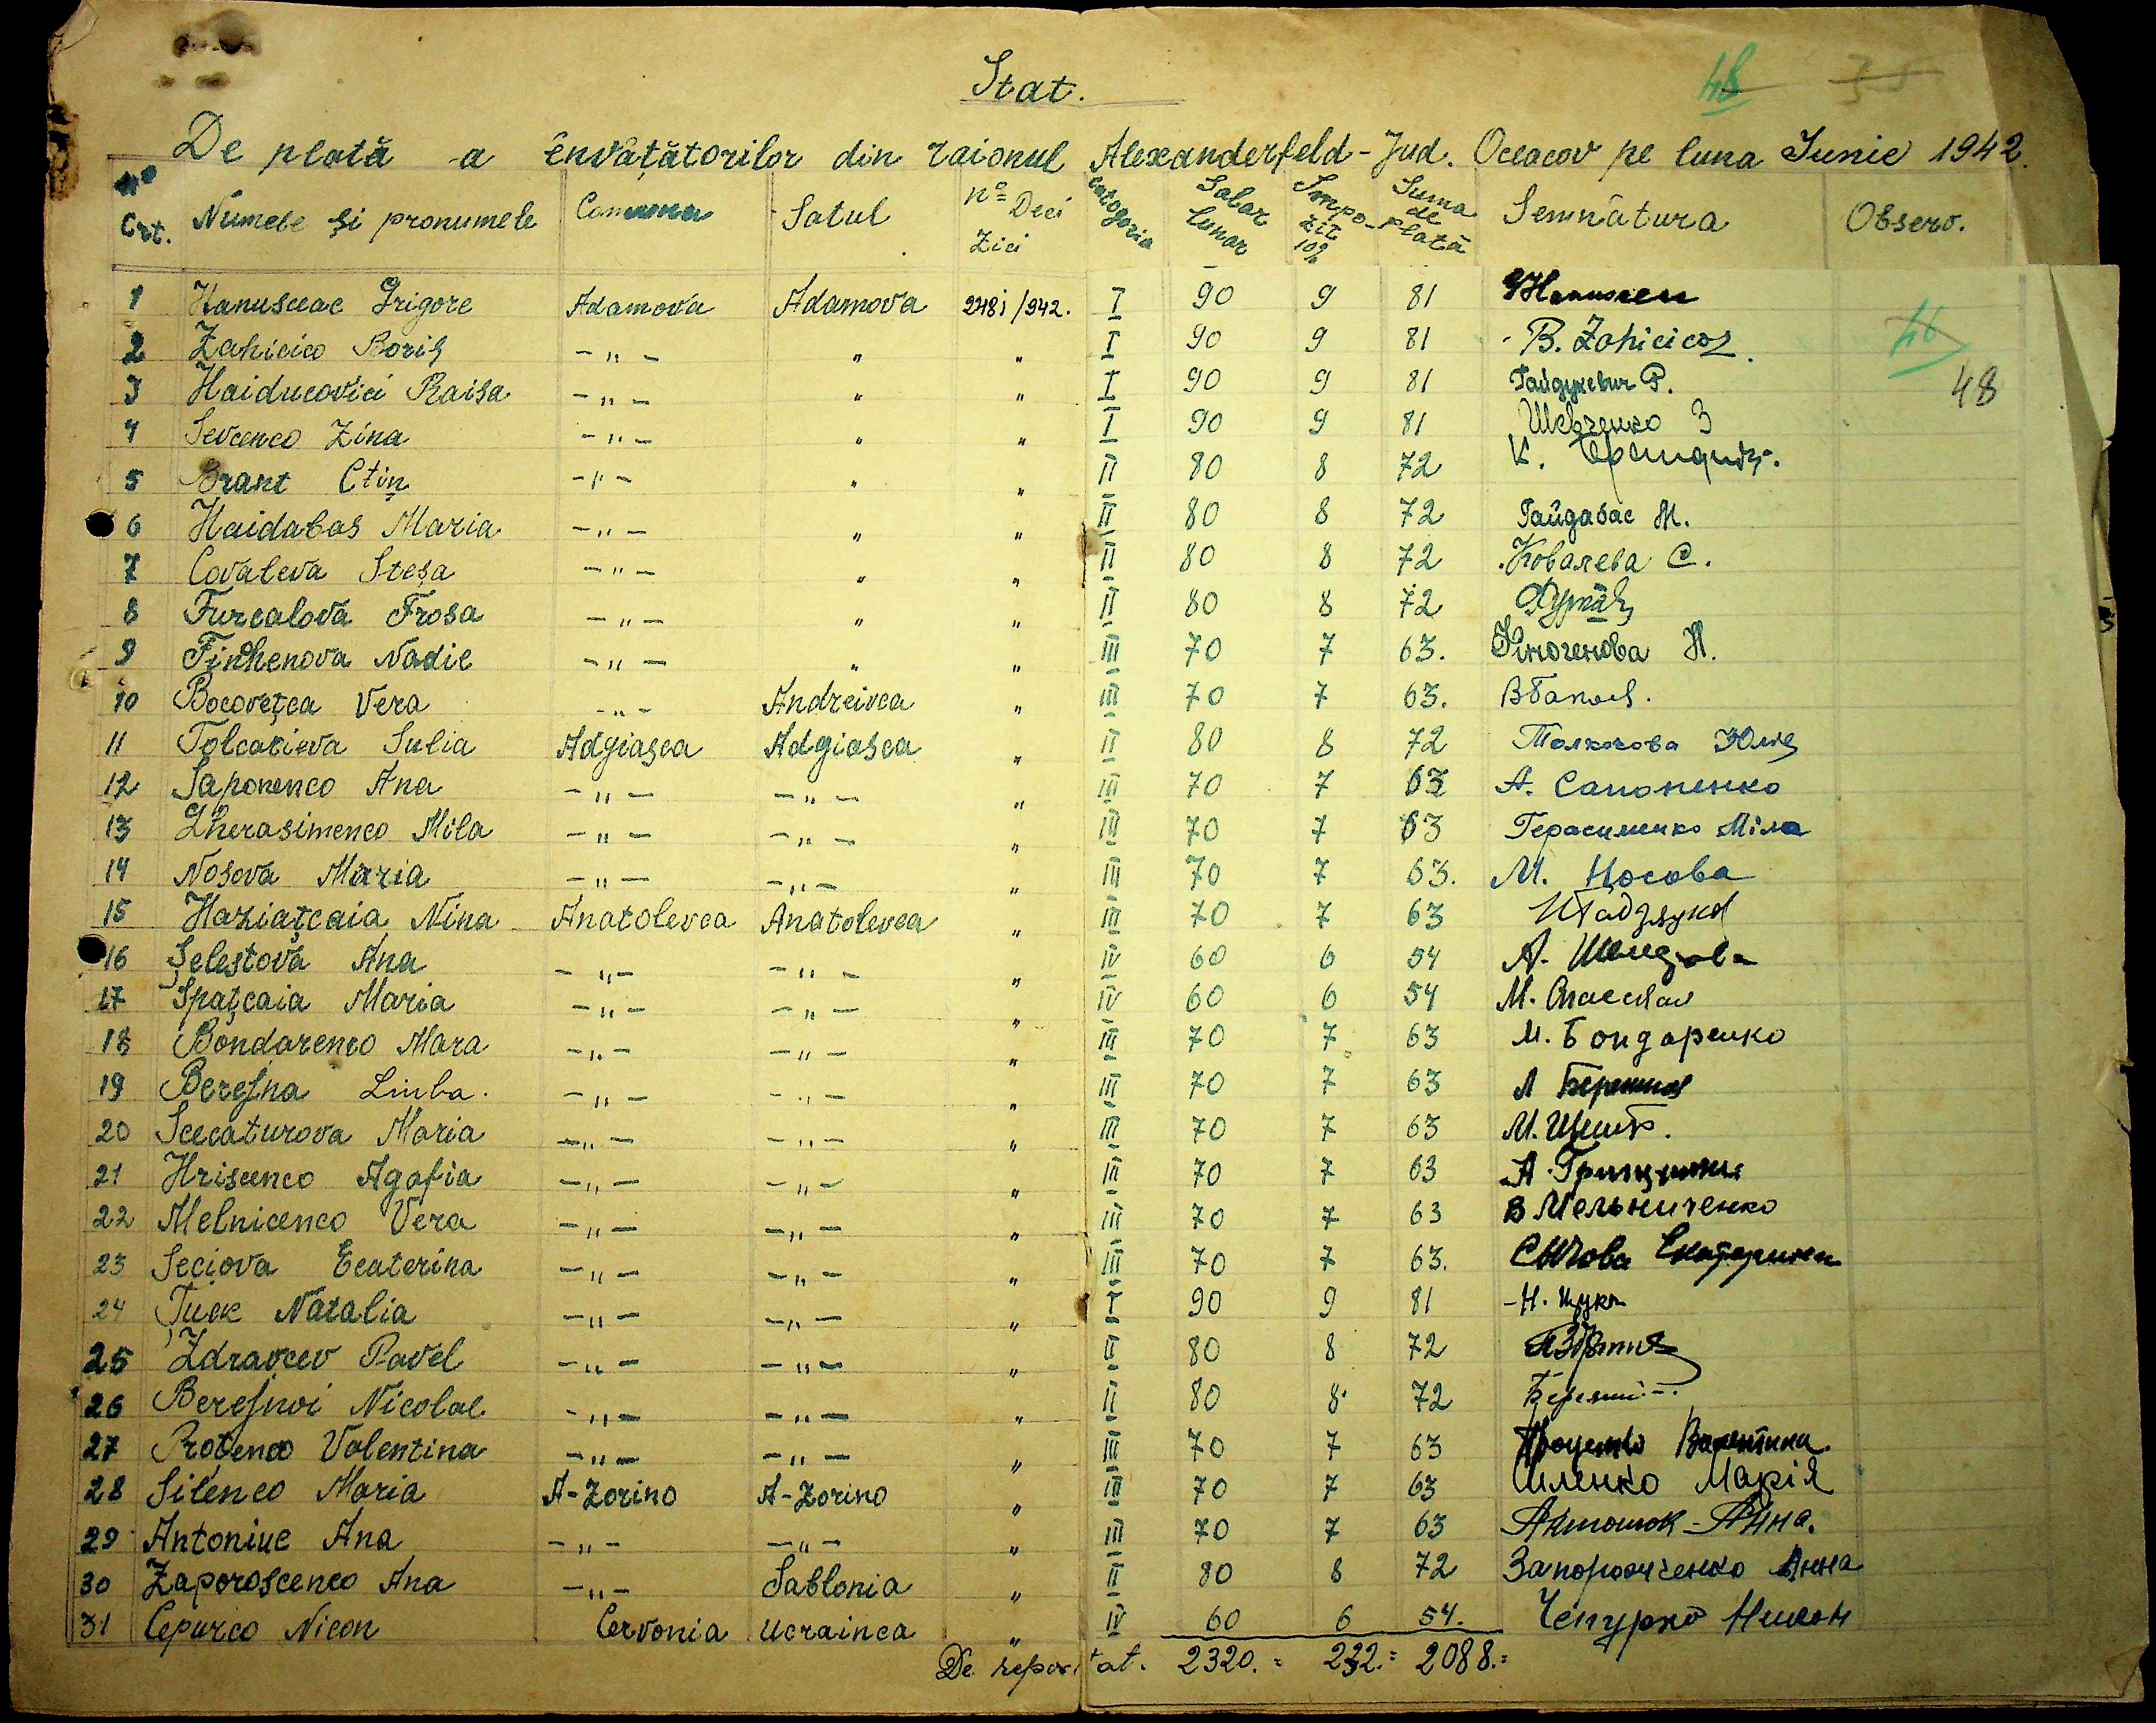 48 35
Stat.
De plată a învățătorilor din raionul Alexanderfeld - Jud. Oceacov pe luna Iunie 1942.
No Crt. Numele și pronumele Comuna Satul no Deci Zici Categoria Salar lunar Impozit 10% Suma de plată Semnătura Observ.
1 Hanusceac Grigore Adamova Adamova 2481/942. I 90 9 81
2 Zahicico Boris -„- „ „ I 90 9 81 B. Zahicico
3 Haiducovici Raisa -„- „ „ I 90 9 81 Гайдукевич Р.
4 Sevcenco Zina -„- „ „ I 90 9 81 Шевченко З
5 Brant Ctin -„- „ „ II 80 8 72 К.
6 Haidabas Maria -„- „ „ II 80 8 72 Гайдабас М.
7 Covaleva Steșa -„- „ „ II 80 8 72 Ковалева С.
8 Furcalova Frosa -„- „ „ II 80 8 72
9 Finhenova Nadie -„- „ „ III 70 7 63. Финогенова Н.
10 Bocovețca Vera -„- Andreivca „ III 70 7 63.
11 Tolcacieva Iulia Adgiasca Adgiasca „ II 80 8 72 Толкачова Юлия
12 Saponenco Ana -„- -„- „ III 70 7 63 А. Сапоненко
13 Gherasimenco Mila -„- -„- „ III 70 7 63 Герасименко Міла
14 Nosova Maria -„- -„- „ III 70 7 63. М. Носова
15 Haziațcaia Nina Anatolevca Anatolevca „ III 70 7 63
16 Șelestova Ana -„- -„- „ IV 60 6 54 А.
17 Spațcaia Maria -„- -„- „ IV 60 6 54 М.
18 Bondarenco Mara -„- -„- „ III 70 7 63 М. Бондаренко
19 Beresna Liuba. -„- -„- „ III 70 7 63 Л
20 Scecaturova Maria -„- -„- „ III 70 7 63 М.
21 Hriscenco Agafia -„- -„- „ III 70 7 63 А.
22 Melnicenco Vera -„- -„- „ III 70 7 63 В Мельниченко
23 Seciova Ecaterina -„- -„- „ III 70 7 63. Сычова Екатерина
24 Țuck Natalia -„- -„- „ I 90 9 81 Н. Щука
25 Zdravcev Pavel -„- -„- „ II 80 8 72
26 Beresnoi Nicolae -„- -„- „ II 80 8 72
27 Proțenco Valentina -„- -„- „ III 70 7 63 Проценко Валентина.
28 Silenco Maria A-Zorino A-Zorino „ III 70 7 63 Шленко Марія
29 Antoniuc Ana -„- -„- „ III 70 7 63 Антонюк-Анна.
30 Zaporoscenco Ana -„- Sablonia „ II 80 8 72 Запорожченко Анна
31 Cepurco Nicon Cervonia Ucrainca „ IV 60 6 54. Чепурко Никон
De reportat. 2320.= 232.= 2088.=
46
48